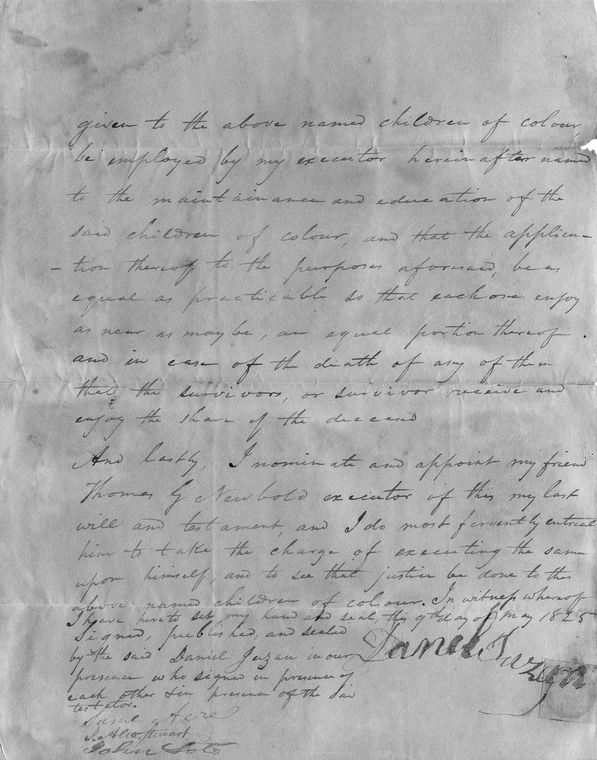 given to the above named children of colour
be employed by my executor herein after named
to the maintainance and education of the
said children of colour, and that the applica-
-tion thereof to the purposes aforesaid, be as
equal as practicable so that each one enjoy
as near as may be, an equal portion thereof.
and in case of the death of any of them
that the survivors, or survivor receive and
enjoy the share of the deceased.
And lastly, I nominate and appoint my friend
Thomas G Newbold executor of this my last
will and testament, and I do most fervently entreat
him to take the charge of executing the same
upon himself, and to see that justice be done to the
above named children of colour. In witness whereof
I have hereto set my hand and seal, this 9th day of May 1825
Signed, published, and sealed
by the said Daniel Juzan in our
presence who signed in presence of
each other & in presence of the said
testator.
Daniel Juzan
Stewart
John